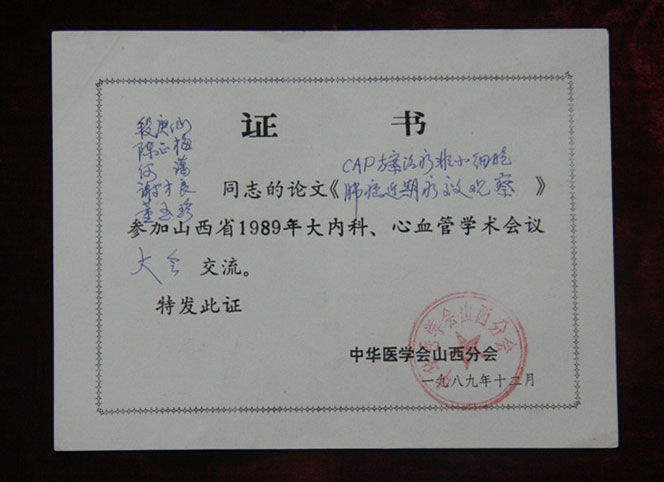 证 书
段庚仙
陈正梅
何 藩
谢才良
董玉珍
同志的论文《CAP方案治疗非小细胞
肺癌近期疗效观察》
参加山西省1989年大内科、心血管学术会议
大会 交流。
特发此证
中华医学会山西分会
一九八九年十二月
中华医学会山西分会